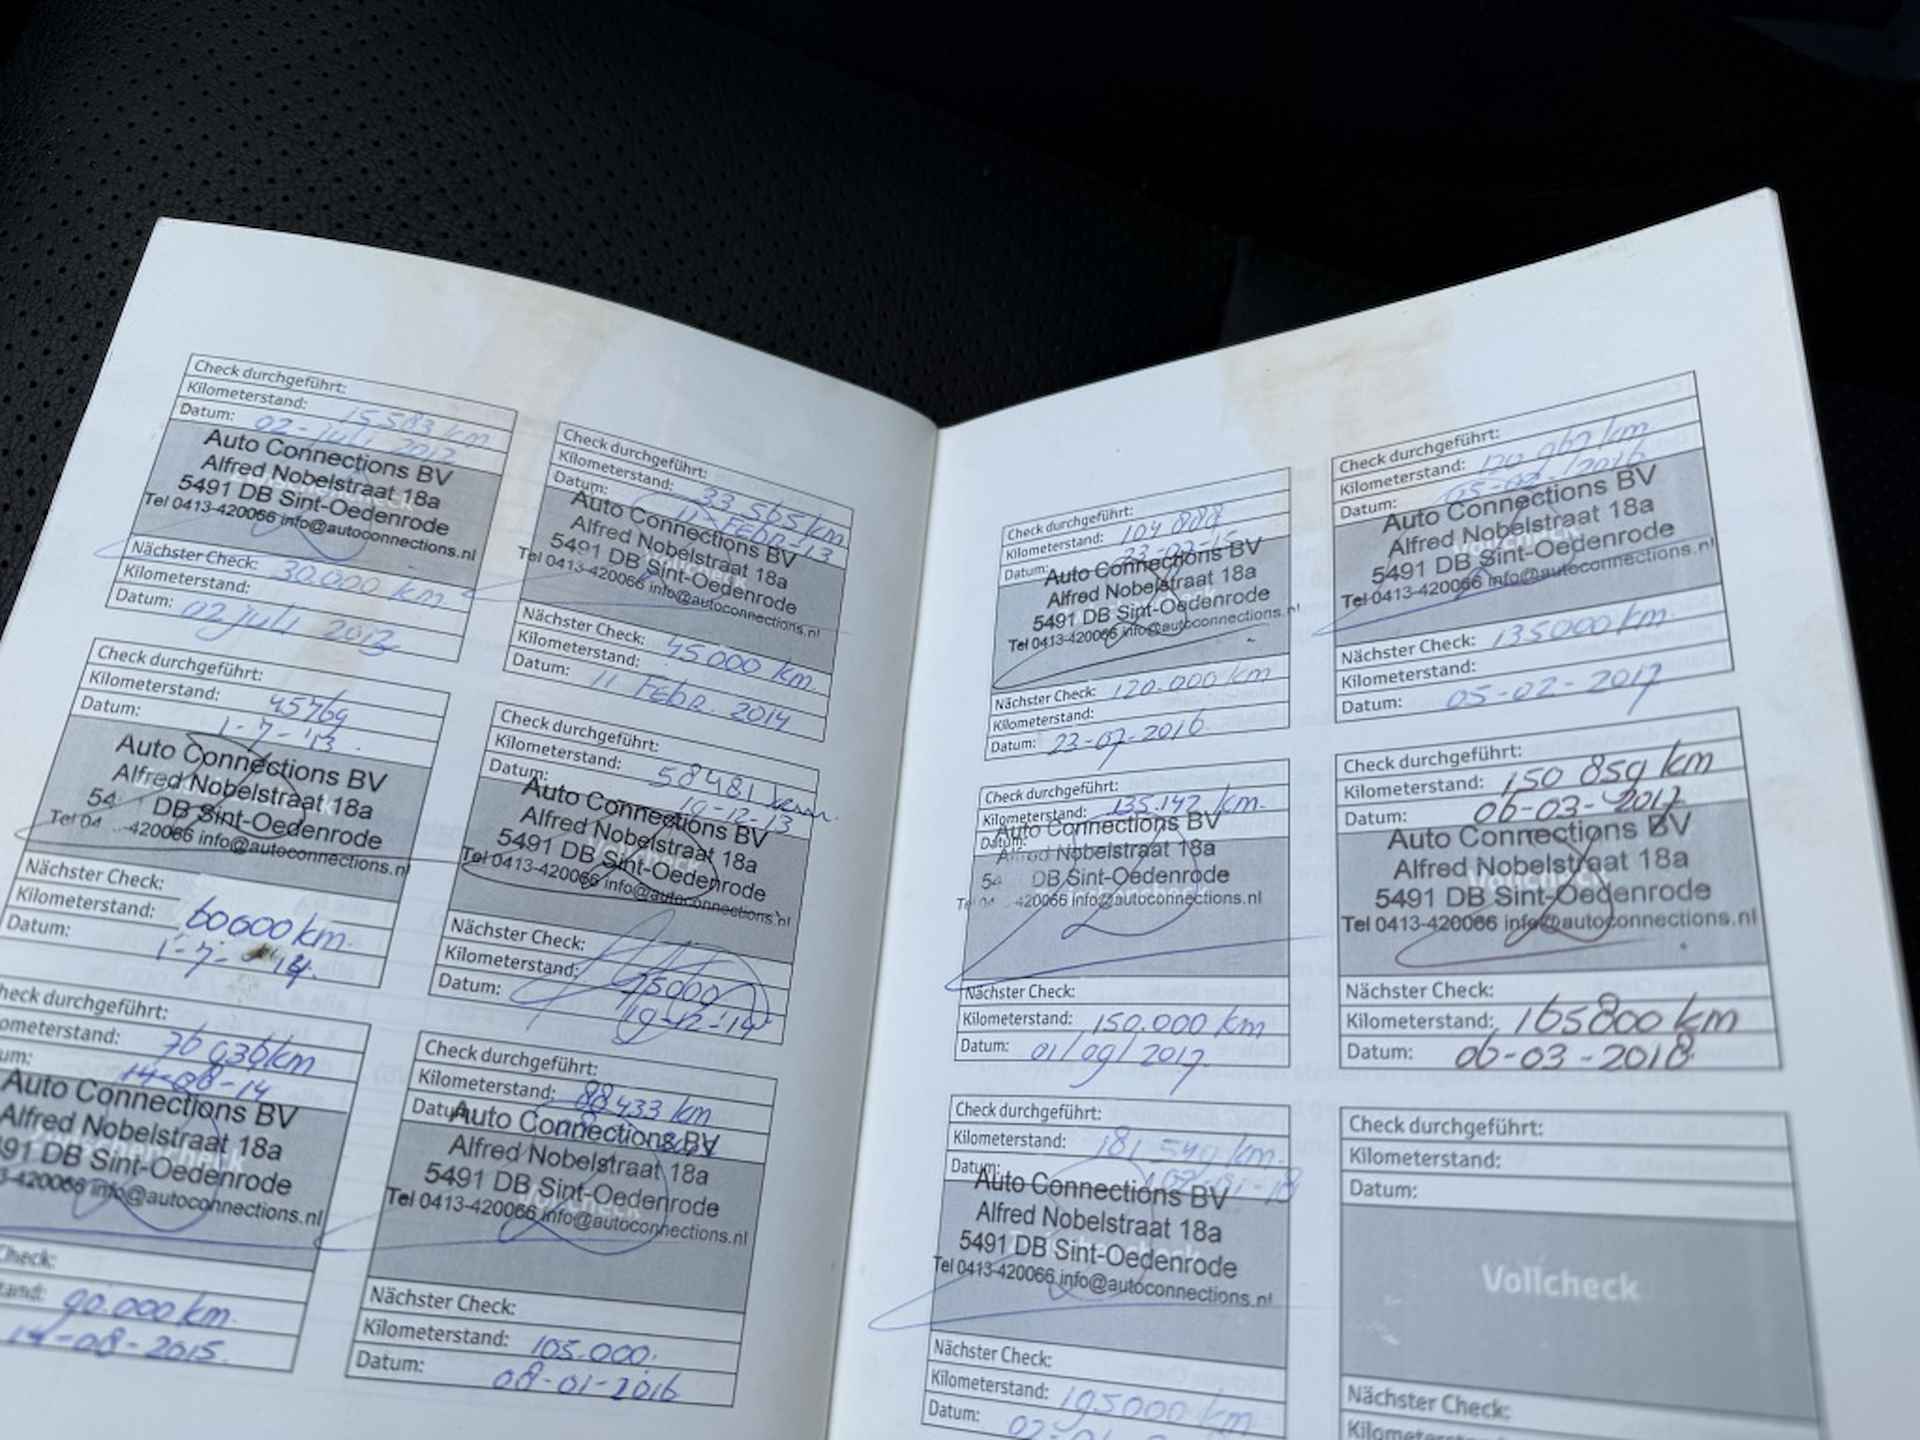 Check durchgeführt:
Kilometerstand: 15583 km
Datum: 02-juli 2012
Auto Connections BV
Alfred Nobelstraat 18a
5491 DB Sint-Oedenrode
Tel 0413-420066 info@autoconnections.nl
Nächster Check:
Kilometerstand: 30.000 km
Datum: 02 juli 2013
Check durchgeführt:
Kilometerstand: 33.565 km
Datum: 11-Febr-13
Auto Connections BV
Alfred Nobelstraat 18a
5491 DB Sint-Oedenrode
Tel 0413-420066 info@autoconnections.nl
Nächster Check:
Kilometerstand: 45.000 km.
Datum: 11 Febr. 2014
Check durchgeführt:
Kilometerstand: 45769
Datum: 1-7-'13.
Auto Connections BV
Alfred Nobelstraat 18a
54 DB Sint-Oedenrode
Tel 04 -420066 info@autoconnections.nl
Nächster Check:
Kilometerstand: 60000 km.
Datum: 1-7- 14.
Check durchgeführt:
Kilometerstand: 58481
Datum: 19-12-13
Auto Connections BV
Alfred Nobelstraat 18a
5491 DB Sint-Oedenrode
Tel 0413-420066 info@autoconnections.nl
Nächster Check:
Kilometerstand: 75000
Datum: 19-12-'14
heck durchgeführt:
ometerstand: 76936km
um: 14-08-14
Auto Connections BV
Alfred Nobelstraat 18a
91 DB Sint-Oedenrode
3-420066 info@autoconnections.nl
Check:
tand: 90.000 km.
14-08-2015.
Check durchgeführt:
Kilometerstand: 88433 km
Datum:
Auto Connections BV
Alfred Nobelstraat 18a
5491 DB Sint-Oedenrode
Tel 0413-420066 info@autoconnections.nl
Nächster Check:
Kilometerstand: 105.000.
Datum: 08-01-2016
Check durchgeführt:
Kilometerstand: 104 888
Datum: 23-07-15
Auto Connections BV
Alfred Nobelstraat 18a
5491 DB Sint-Oedenrode
Tel 0413-420066 info@autoconnections.nl
Nächster Check: 120.000 km
Kilometerstand:
Datum: 23-07-2016
Check durchgeführt:
Kilometerstand: 120 967 km
Datum: 05-02-2016
Auto Connections BV
Alfred Nobelstraat 18a
5491 DB Sint-Oedenrode
Tel 0413-420066 info@autoconnections.nl
Nächster Check: 135000 km.
Kilometerstand:
Datum: 05-02-2017
Check durchgeführt:
Kilometerstand: 135.142 km.
Datum:
Auto Connections BV
Alfred Nobelstraat 18a
54 DB Sint-Oedenrode
420066 info@autoconnections.nl
Nächster Check:
Kilometerstand: 150.000 km
Datum: 01/09/2017.
Check durchgeführt:
Kilometerstand: 150 859 km
Datum: 06-03-2017
Auto Connections BV
Alfred Nobelstraat 18a
5491 DB Sint-Oedenrode
Tel 0413-420066 info@autoconnections.nl
Nächster Check:
Kilometerstand: 165800 km
Datum: 06-03-2018
Check durchgeführt:
Kilometerstand: 181 549 km.
Datum: 02-01-18
Auto Connections BV
Alfred Nobelstraat 18a
5491 DB Sint-Oedenrode
Tel 0413-420066 info@autoconnections.nl
Nächster Check:
Kilometerstand: 195000 km
Datum:
Check durchgeführt:
Kilometerstand:
Datum:
Vollcheck
Nächster Check:
Kilometerstand: